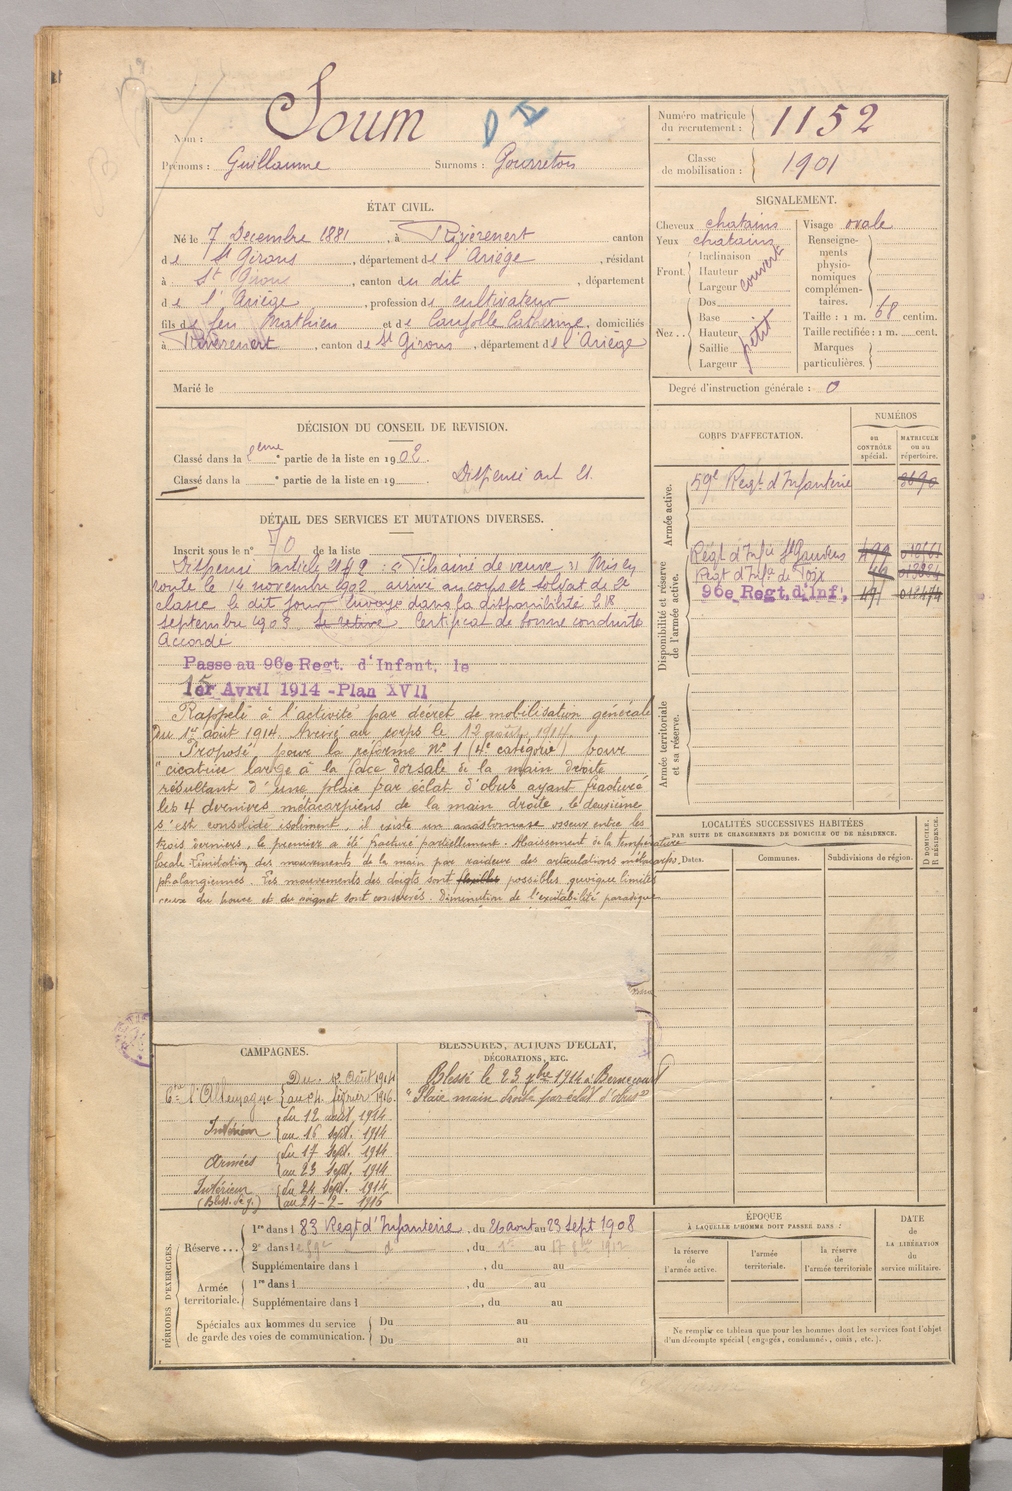 Nom : Soum
Prénoms : Guillaume Surnoms : Gourretois
Numéro matricule du recrutement : 1152
Classe de mobilisation : 1901
ÉTAT CIVIL.
Né le 7 Décembre 1881, à Rivèrenert canton
de St Girons, département de l'Ariège, résidant
à St Girons, canton du dit, département
de l'Ariège, profession de cultivateur
fils de feu Mathieu et de Caujolle Catherine, domiciliés
à Rivèrenert, canton de St Girons, département de l'Ariège
Marié le
SIGNALEMENT.
Cheveux chatains
Yeux chatains
Front. Inclinaison Hauteur Largeur couvert
Nez.. Dos Base Hauteur Saillie Largeur petit
Visage ovale
Renseignements physionomiques complémentaires.
Taille : 1 m. 68 centim.
Taille rectifiée : 1 m. cent.
Marques particulières.
Degré d'instruction générale : 0
DÉCISION DU CONSEIL DE REVISION.
Classé dans la 2eme partie de la liste en 1902.
Classé dans la e partie de la liste en 19 . Dispensé art 21.
DÉTAIL DES SERVICES ET MUTATIONS DIVERSES.
Inscrit sous le n° 70 de la liste
Dispensé article 21 de veuve Mis en
route le 14 novembre 1902 arrivé au corps et soldat de 2e
classe le dit jour Envoyé dans la disponibilité le 18
septembre 1903 Certificat de bonne conduite
Accordé
Passé au 96e Regt. d'Infant. le
15 1er Avril 1914 - Plan XVII
Rappelé à l'activité par décret de mobilisation générale
Du 1er août 1914. Arrivé au corps le 12 août 1914.
Proposé pour la réforme N° 1 (4e catégorie) pour
"cicatrice large à la face dorsale de la main droite
résultant d'une plaie par éclat d'obus ayant fracturé
les 4 derniers métacarpiens de la main droite, le deuxième
s'est consolidé isolément, il existe un anastomose osseux entre les
trois derniers, le premier a été fracturé partiellement. Abaissement de la température
locale Limitation des mouvements de la main par raideur des articulations métacarpo
phalangiennes. Les mouvements des doigts sont flexibles possibles quoique limités
ceux du pouce et du poignet sont conservés. Diminution de l'excitabilité
CORPS D'AFFECTATION.
NUMÉROS
au CONTRÔLE spécial.
MATRICULE ou au répertoire.
Armée active.
59e Regt d'Infanterie 3690
Disponibilité et réserve de l'armée active.
Régt d'Infie St Gaudens
Regt d'Infie de Foix
96e Regt. d'Inf.
Armée territoriale et sa réserve.
LOCALITÉS SUCCESSIVES HABITÉES
PAR SUITE DE CHANGEMENTS DE DOMICILE OU DE RÉSIDENCE.
Dates. Communes. Subdivisions de région. D DOMICILE. R RÉSIDENCE.
CAMPAGNES.
Cgne l'Allemagne Du 12 Août 1914 au 24 février 1916.
Intérieur du 12 août 1914 au 16 sept. 1914
Armées du 17 sept. 1914 au 23 sept. 1914
Intérieur (Bless. de g.) du 24 sept. 1914 au 24-2-1916
BLESSURES, ACTIONS D'ÉCLAT,
DÉCORATIONS, ETC.
Blessé le 23 7bre 1914 à Bernecourt
"Plaie main droite par éclat d'obus"
PÉRIODES D'EXERCICES.
Réserve... 1re dans l 83 Regt d'Infanterie, du 26 aout au 23 sept 1908
2e dans le 59e d, du 1er au 17 1912
Supplémentaire dans l , du au
Armée territoriale. 1re dans l , du au
Supplémentaire dans l , du au
Spéciales aux hommes du service de garde des voies de communication. Du au
Du au
ÉPOQUE
À LAQUELLE L'HOMME DOIT PASSER DANS :
la réserve de l'armée active.
l'armée territoriale.
la réserve de l'armée territoriale
DATE de LA LIBÉRATION du service militaire.
Ne remplir ce tableau que pour les hommes dont les services font l'objet
d'un décompte spécial (engagés, condamnés, omis, etc.).